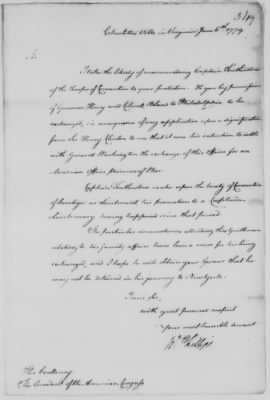 3/49
Colonel's Ville in Virginia June 6th 1779
Sir
I take the liberty of recommending Captain Featherstone
of the Troops of Convention to your protection. He goes by permission of
Governor Henry and Colonel Bland to Philadelphia to be
exchanged, in consequence of my application upon a signification
from Sir Henry Clinton to me that it was his intention to settle
with General Washington the exchange of this Officer for an
American Officer prisoner of War.
Captain Featherstone came upon the treaty of Convention
of Saratoga as Lieutenant, his promotion to a Captain
Lieutenancy having happened since that period.
The particular circumstances attending this Gentleman
relating to his family affairs have been a cause for his being
exchanged, and I hope he will obtain your favour that he
may not be detained in his journey to New York.
I am Sir,
with great personal respect
your most humble servant
W Phillips
His Excellency
The President of the American Congress